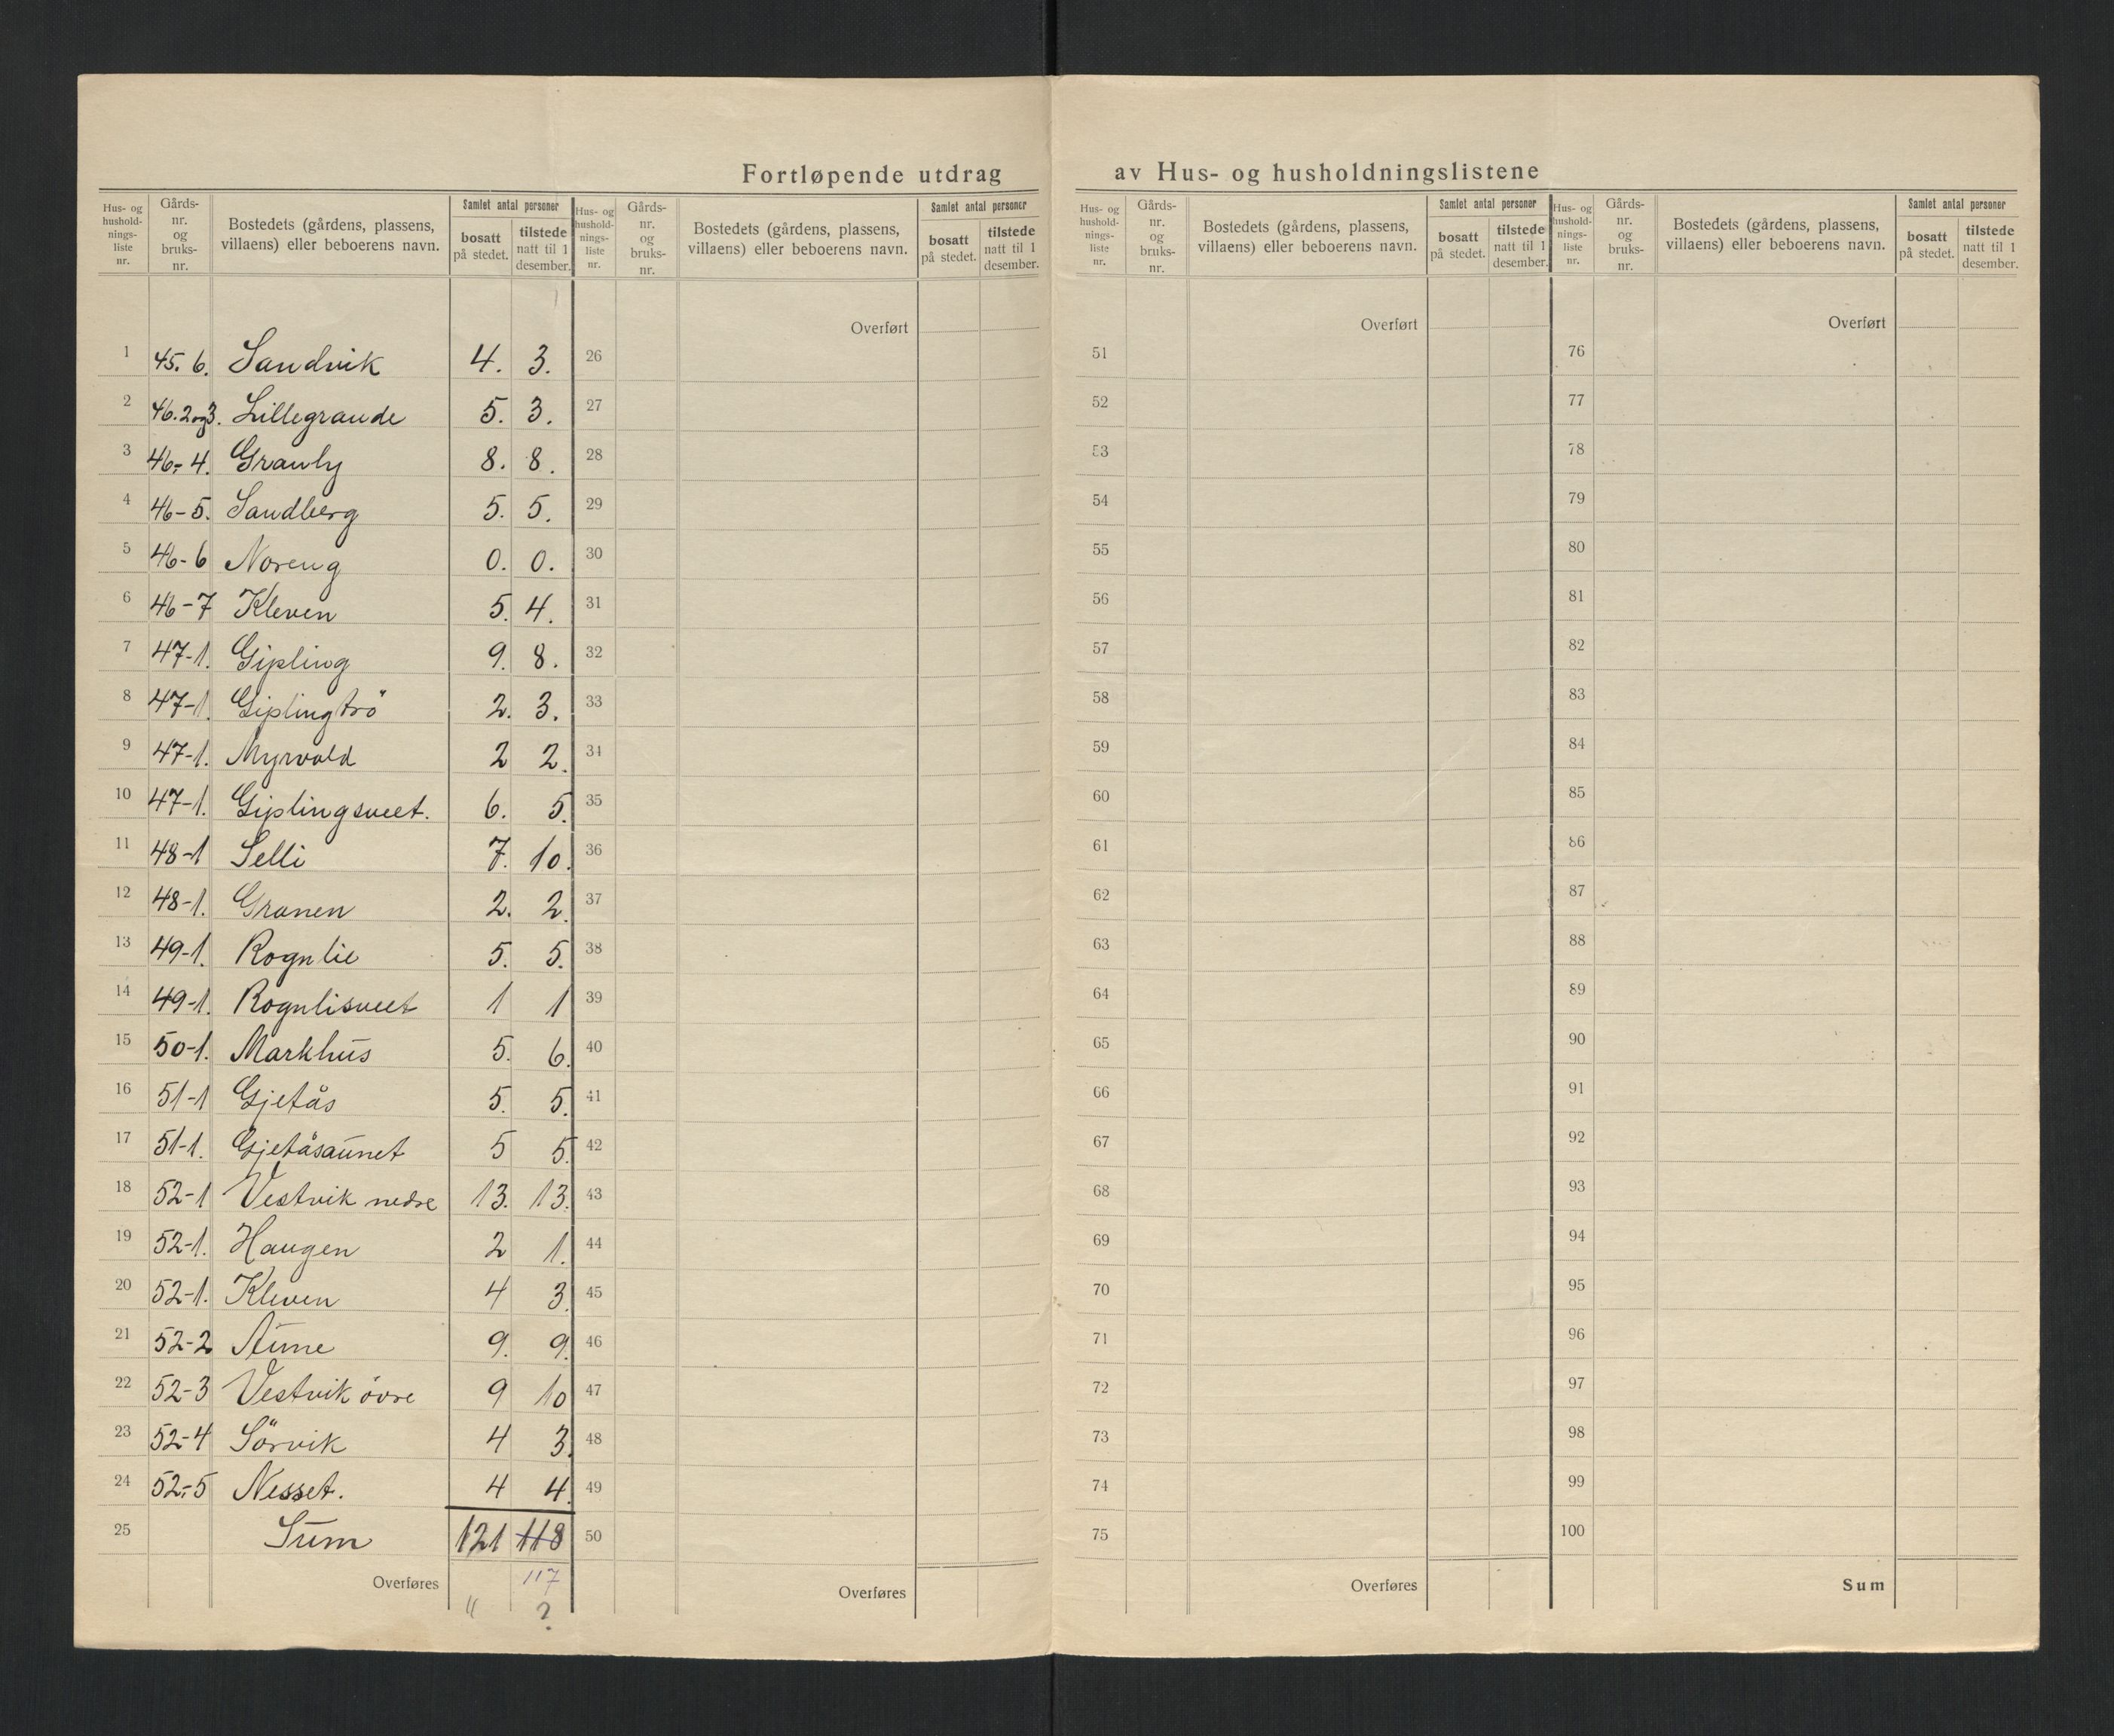 Fortløpende utdrag av Hus- og husholdningslistene
Hus- og hushold-nings-liste nr. | Gårds-nr. og bruks-nr. | Bostedets (gårdens, plassens, villaens) eller beboerens navn. | Samlet antal personer | bosatt på stedet. | tilstede natt til 1 desember.
1 45. 6. Sandvik 4. 3.
2 46. 2 og 3. Lillegrande 5. 3.
3 46- 4. Granly 8. 8.
4 46-5. Sandberg 5. 5.
5 46-6 Noreng 0. 0.
6 46-7 Kleven 5. 4.
7 47-1. Gipling 9. 8.
8 47-1. Giplingtrö 2. 3.
9 47-1. Myrvold 2 2.
10 47-1. Giplingsveet. 6. 5.
11 48-1 Selli 7. 10.
12 48-1. Granen 2. 2.
13 49-1. Rognlie 5. 5.
14 49-1. Rognlisveet 1 1
15 50-1. Markhus 5. 6.
16 51-1 Gjetås 5. 5.
17 51-1. Gjetåsaunet 5 5.
18 52-1 Vestvik nedre 13. 13.
19 52-1. Haugen 2 1.
20 52-1. Kleven 4 3.
21 52-2 Aune 9. 9.
22 52-3 Vestvik övre 9 10
23 52-4 Sörvik 4 3.
24 52-5 Nesset. 4 4.
25 Sum 121 118
Overføres 117
" ?
Hus- og hushold-nings-liste nr. | Gårds-nr. og bruks-nr. | Bostedets (gårdens, plassens, villaens) eller beboerens navn. | Samlet antal personer | bosatt på stedet. | tilstede natt til 1 desember.
Overført
26
27
28
29
30
31
32
33
34
35
36
37
38
39
40
41
42
43
44
45
46
47
48
49
50
Overføres
Hus- og hushold-nings-liste nr. | Gårds-nr. og bruks-nr. | Bostedets (gårdens, plassens, villaens) eller beboerens navn. | Samlet antal personer | bosatt på stedet. | tilstede natt til 1 desember.
Overført
51
52
53
54
55
56
57
58
59
60
61
62
63
64
65
66
67
68
69
70
71
72
73
74
75
Overføres
Hus- og hushold-nings-liste nr. | Gårds-nr. og bruks-nr. | Bostedets (gårdens, plassens, villaens) eller beboerens navn. | Samlet antal personer | bosatt på stedet. | tilstede natt til 1 desember.
Overført
76
77
78
79
80
81
82
83
84
85
86
87
88
89
90
91
92
93
94
95
96
97
98
99
100
Sum